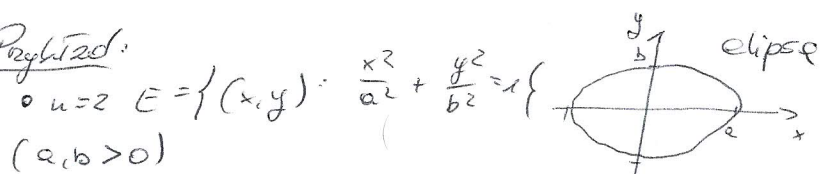 Przykład:
• n=2 E = {(x,y): x²/a² + y²/b² = 1}
(a,b>0)
y
b
elipsa
a
x